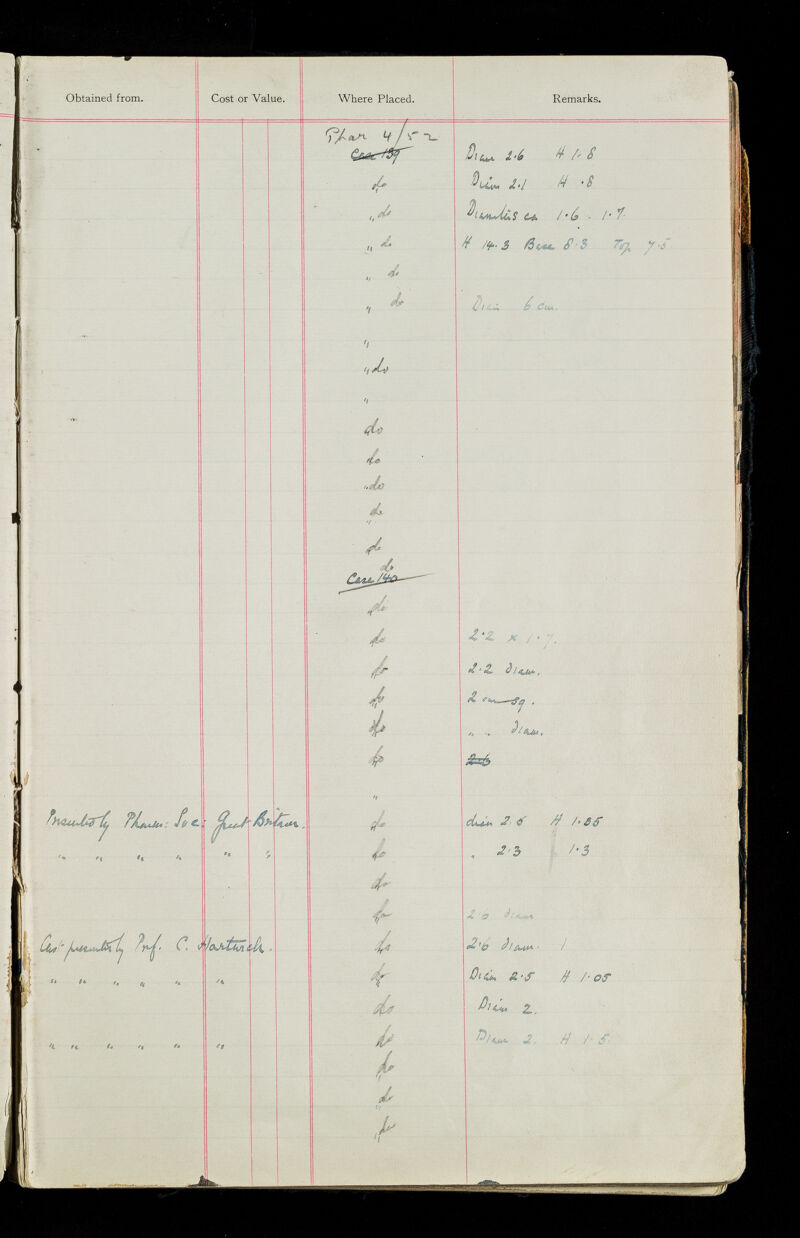 Obtained from. Cost or Value. Where Placed. Remarks.
Phar 4/52
Case 139 Diam 2.6 H 1.8
do Diam 2.1 H .8
" do Diameters ca 1.6 - 1.7.
" do H 14.3 Base 8.3 Top 7.5
" do
" do Diam 6 cm.
"
" do
"
do
do
" do
do
"
do
do
Case 140
do
do 2.2 x 1.7.
do 2.2 Diam.
do 2 cm sq.
do " " Diam.
do 2.6
"
Presented by Pharm: Soc: Great Britain. do diam 2.5 H 1.85
" " " " " " do " 2.3 1.3
do
do 2.6 diam
Cast presented by Prof. C. Hartwich. do 2.6 diam. 1
" " " " " " do Diam 2.5 H 1.05
do Diam 2.
" " " " " " do Diam 2. H 1.5.
do
" do
" do